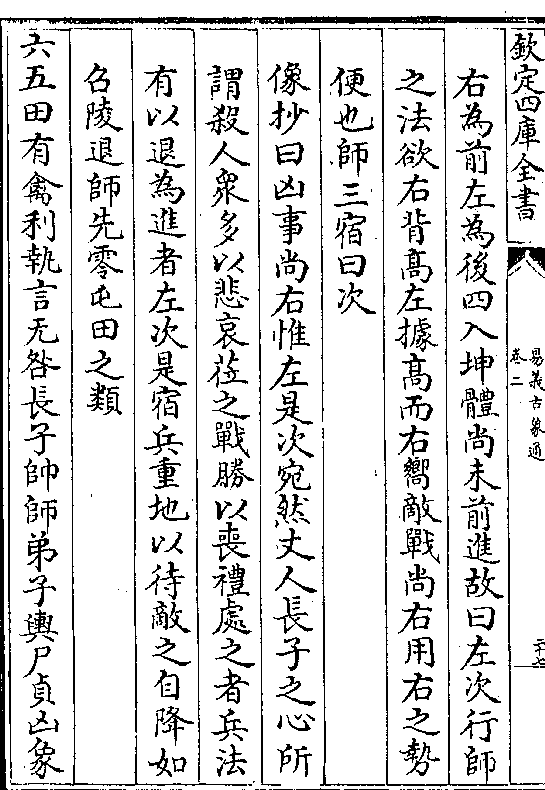 欽定四庫全書
易義古象通
卷二
二十七
右為前左為後四入坤體尚未前進故曰左次行師
之法欲右背髙左據髙而右嚮敵戰尚右用右之勢
便也師三宿曰次
像抄曰凶事尚右惟左是次宛然丈人長子之心所
謂殺人衆多以悲哀莅之戰勝以喪禮處之者兵法
有以退為進者左次是宿兵重地以待敵之自降如
召陵退師先零屯田之類
六五田有禽利執言无咎長子帥師弟子輿尸貞凶象